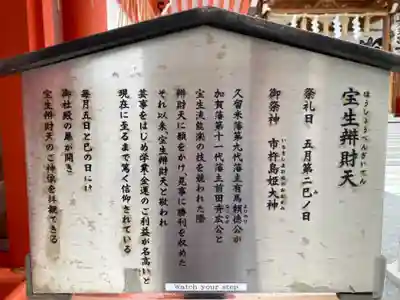 宝生辨財天
ほうしょうべんざいてん
祭礼日 五月第一巳ノ日
み
御祭神 市杵島姫大神
いちきしまひめのおおかみ
久留米藩第九代藩主有馬頼徳公が
加賀藩第十一代藩主前田斉広公と
宝生流能楽の技を競われた際
辨財天に願をかけ、見事に勝利を収めた
それ以来、宝生辨財天と敬われ
芸事をはじめ学業・金運のご利益が名高いと
現在に至るまで篤く信仰されている
毎月五日と巳の日に
御社殿の扉が開き
宝生辨財天のご神像を拝観できる
Watch your step.